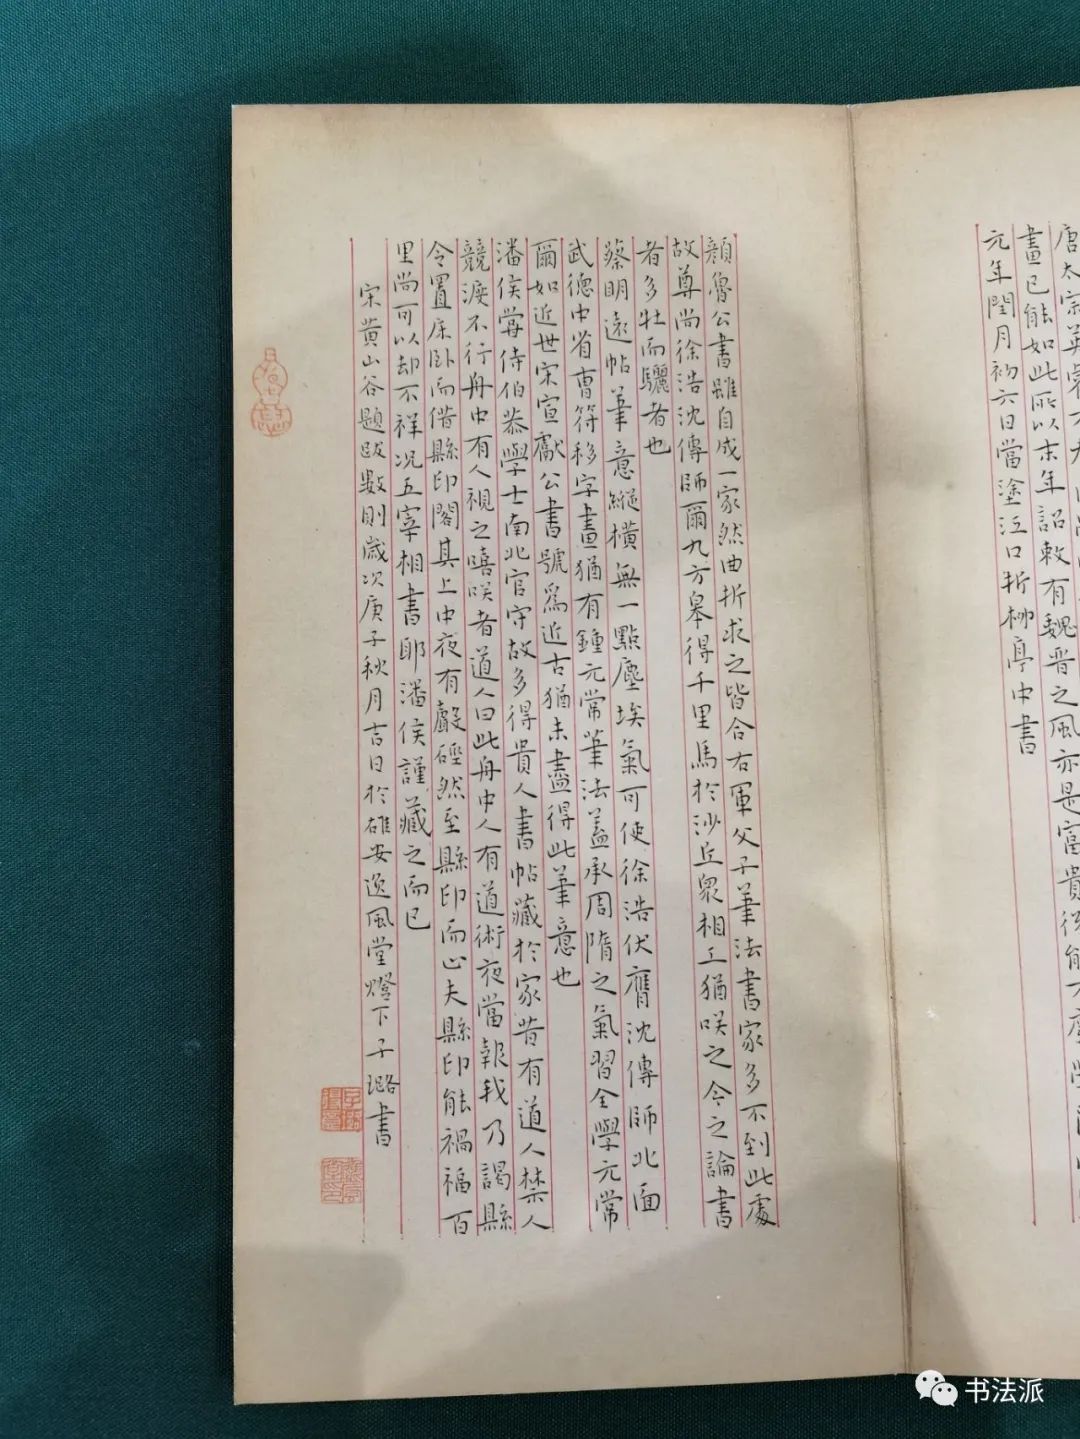 唐太宗英
畫已能如此所以末年詔敕有魏晉之風亦是富貴後能
元年閏月初六日當塗江口折柳亭中書
顏魯公書雖自成一家然曲折求之皆合右軍父子筆法書家多不到此處
故尊尚徐浩沈傳師爾九方皋得千里馬於沙丘眾相工猶咲之今之論書
者多牡而驪者也
蔡明遠帖筆意縱橫無一點塵埃氣可使徐浩伏膺沈傳師北面
武德中省曹符移字畫猶有鍾元常筆法蓋承周隋之氣習全學元常
爾如近世宋宣獻公書號為近古猶未盡得此筆意也
潘侯嘗侍伯恭學士南北官守故多得貴人書帖藏於家昔有道人禁人
競渡不行舟中有人視之嘻咲者道人曰此舟中人有道術夜當報我乃謁縣
令置床臥而借縣印閣其上中夜有聲硜然至縣印而止夫縣印能禍福百
里尚可以却不祥况五宰相書耶潘侯謹藏之而已
宋黄山谷題跋數則歲次庚子秋月吉日於雄安逸風堂燈下子璐書
书法派